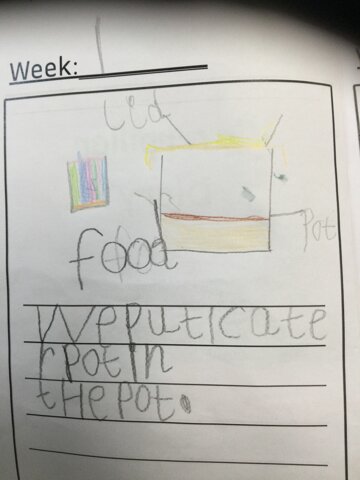 Week: 1
Lid
food
Pot
We put I cate
r pot in
tHe pot.